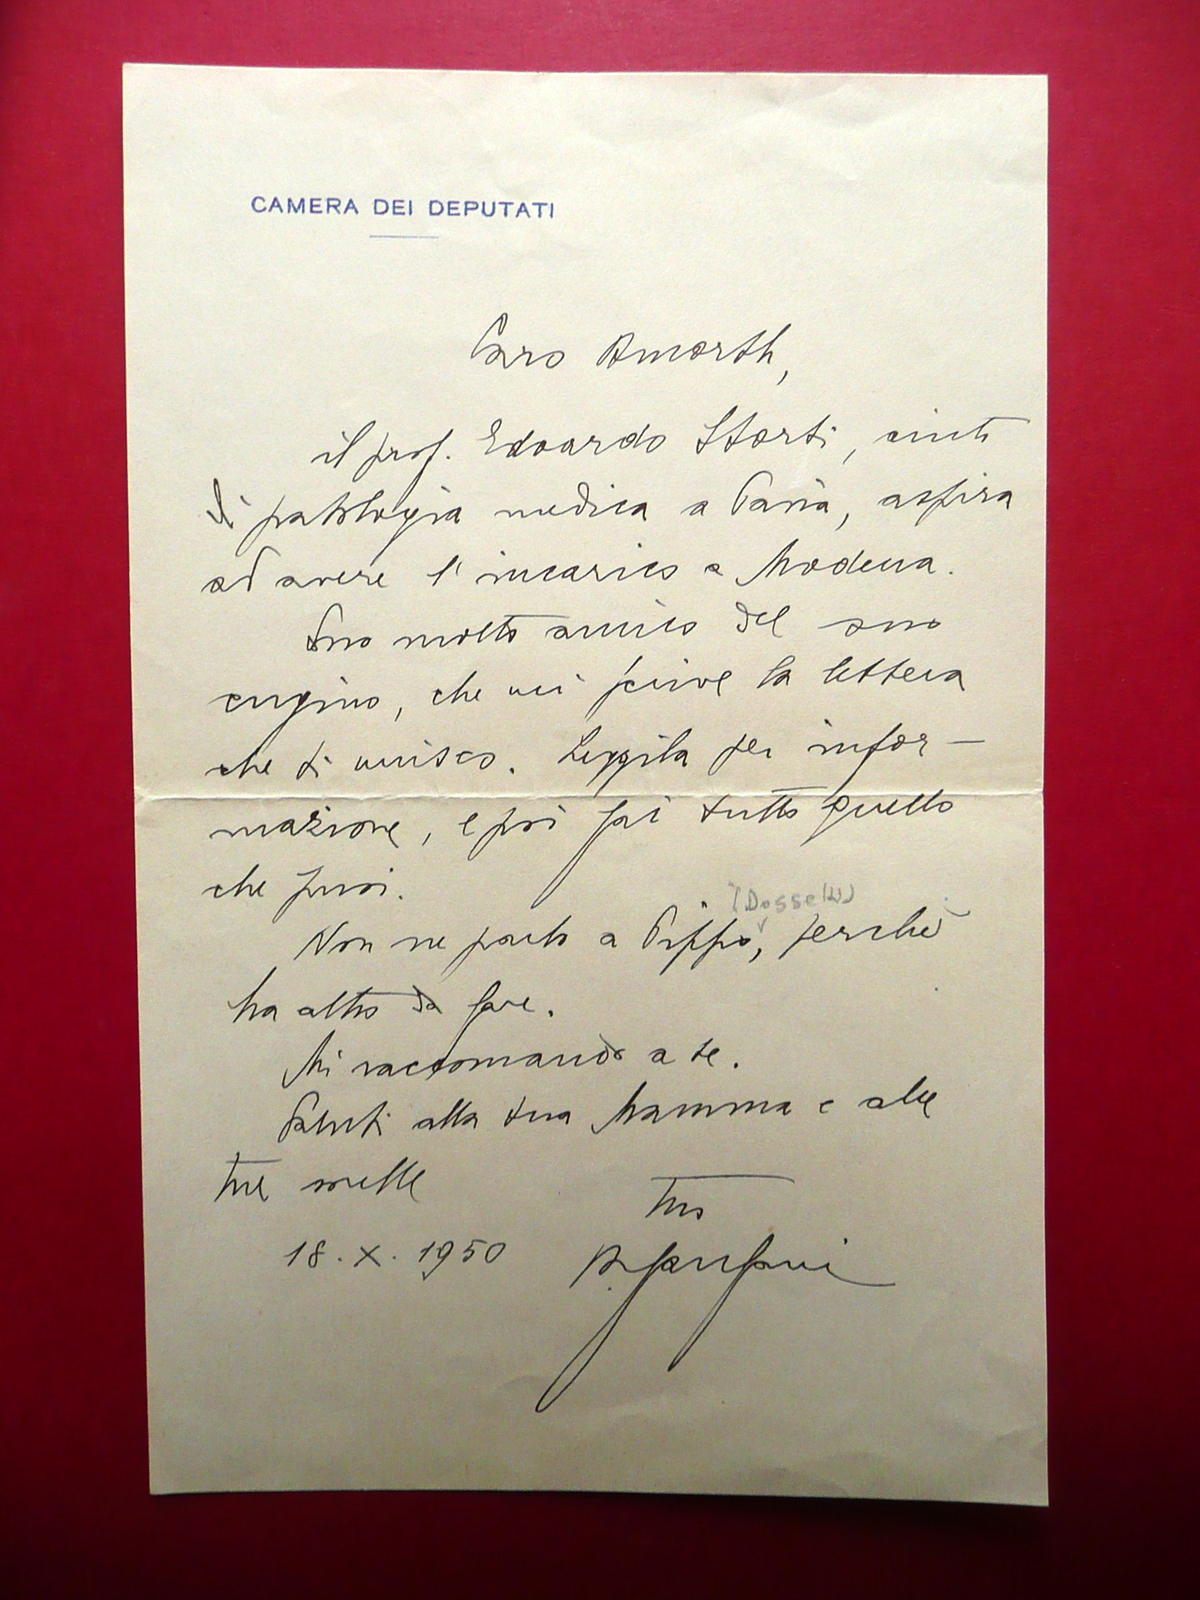 CAMERA DEI DEPUTATI
Caro Amorth,
il prof. Edoardo Storti, aiuto
di patologia medica a Pavia, aspira
ad avere l'incarico a Modena.
Sono molto amico del suo
cugino, che mi scrive la lettera
che ti unisco. Leggila per infor-
mazione, e poi fai tutto quello
che puoi.
(Dossetti)
Non ne parlo a Pippo, perchè
ha altro da fare.
Mi raccomando a te.
Saluti alla tua Mamma e alle
tue sorelle
Tuo
18. X. 1950 A. Fanfani